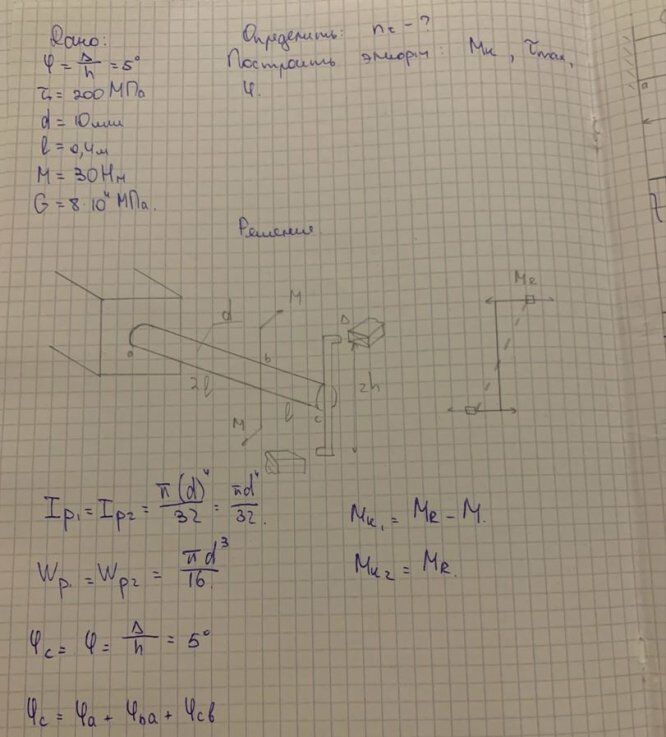 Дано:
φ = Δ/h = 5°
τт = 200 МПа
d = 10 мм
l = 0,4 м
M = 30 Нм
G = 8·10⁴ МПа.
Определить: nт - ?
Построить эпюры: Mк, τmax,
φ.
Решение
M
d
Δ
a
b
2l
l
c
2h
M
MR
Ip₁ = Ip₂ = π(d)⁴/32 = πd⁴/32.
Wp₁ = Wp₂ = πd³/16.
φc = φ = Δ/h = 5°
φc = φa + φba + φcb
Mк₁ = MR - M.
Mк₂ = MR.
a